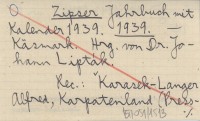 O. Zipser Jahrbuch mit
Kalender 1939. 1939. —
Käsmark. Hrg. von Dr. Jo-
hann Lipták.
Rec.: Karasek-Langer
Alfred, Karpatenland Press-